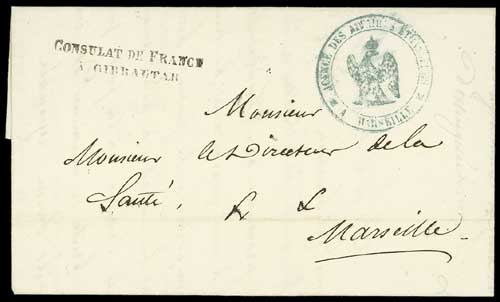 CONSULAT DE FRANCE
À GIBRALTAR
AGENCE DES AFFAIRES ÉTRANGÈRES
A MARSEILLE
Monsieur
Monsieur le Directeur de la
Santé, & &
Marseille